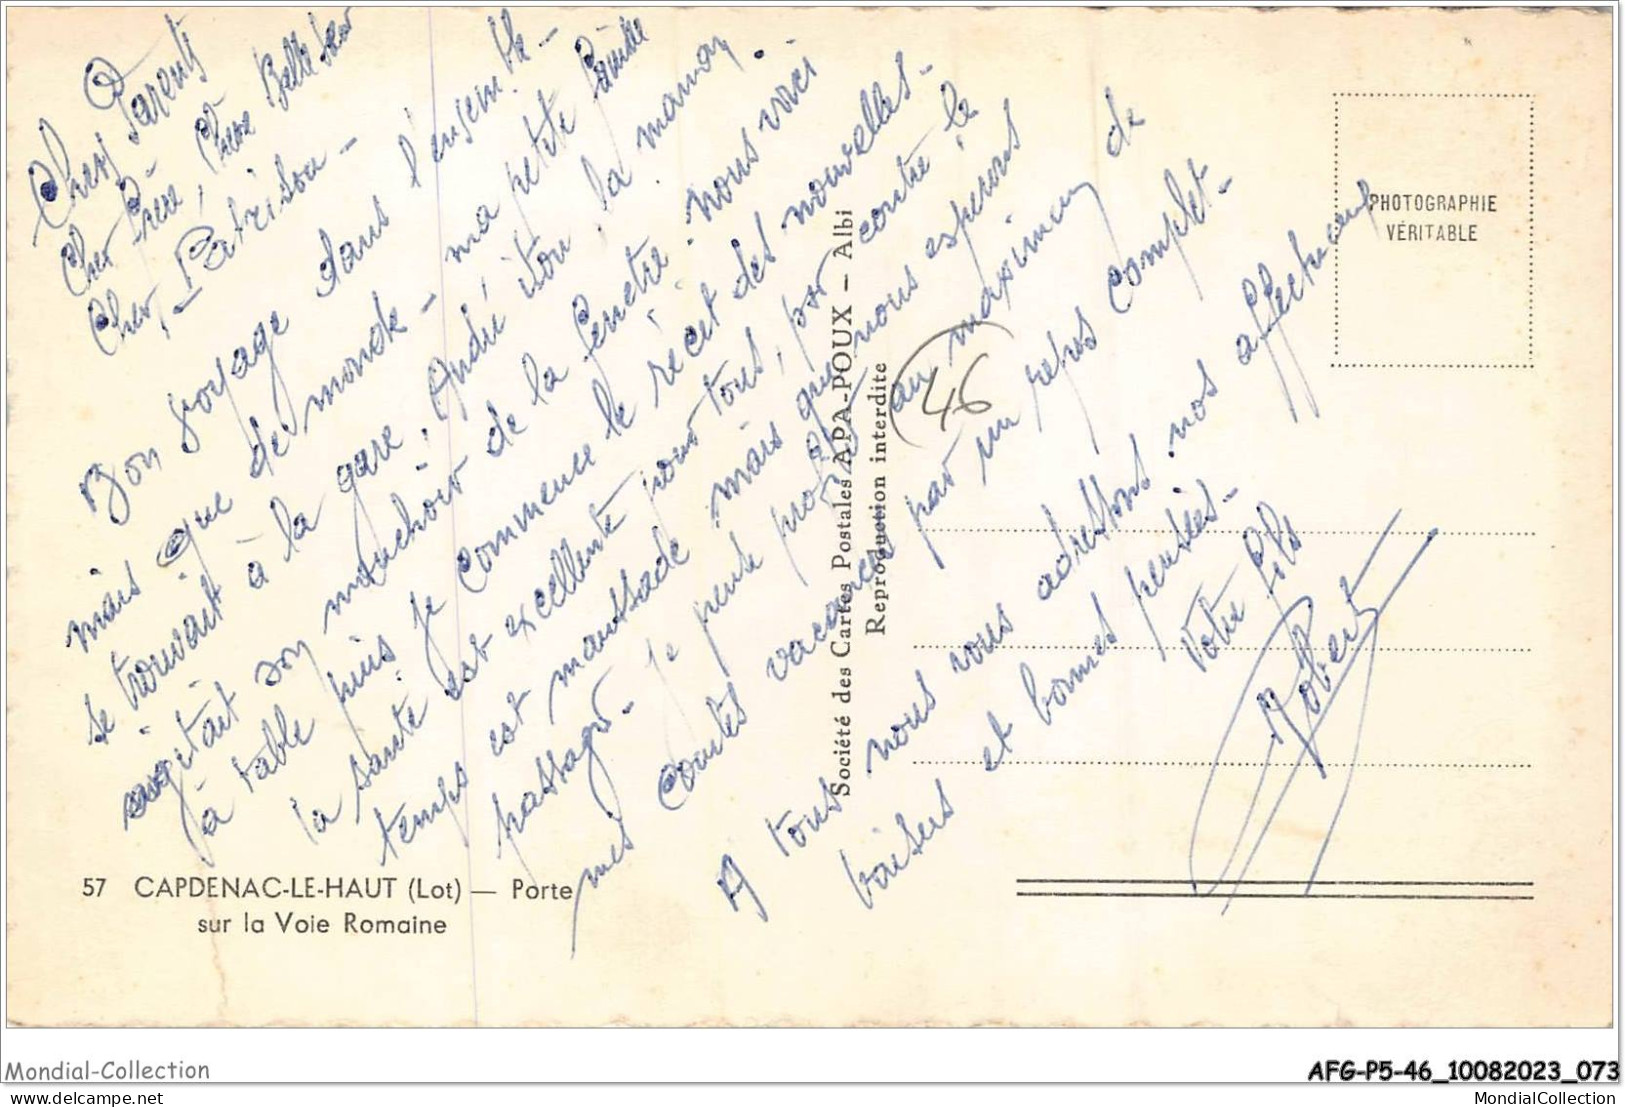 Chers Parents
Cher Frère, Chère Belle Sœur
Cher Patrison –
Bon voyage dans l'ensemble –
mais que de monde – ma petite famille
se trouvait à la gare, André, Iton, la maman
agitait son mouchoir de la fenêtre. nous voici
à table puis je commence le récit des nouvelles –
la santé est excellente pour tous, par contre le
temps est maussade mais que nous esperons
passager – je pense profiter au maximum de
mes courtes vacances par un repos complet –
A tous nous vous adressons nos affectueux
baisers et bonnes pensées –
Votre fils
Robert
46
PHOTOGRAPHIE
VÉRITABLE
Société des Cartes Postales APA-POUX – Albi
Reproduction interdite
57 CAPDENAC-LE-HAUT (Lot) — Porte
sur la Voie Romaine
Mondial-Collection
AFG-P5-46_10082023_073
delcampe.net
MondialCollection